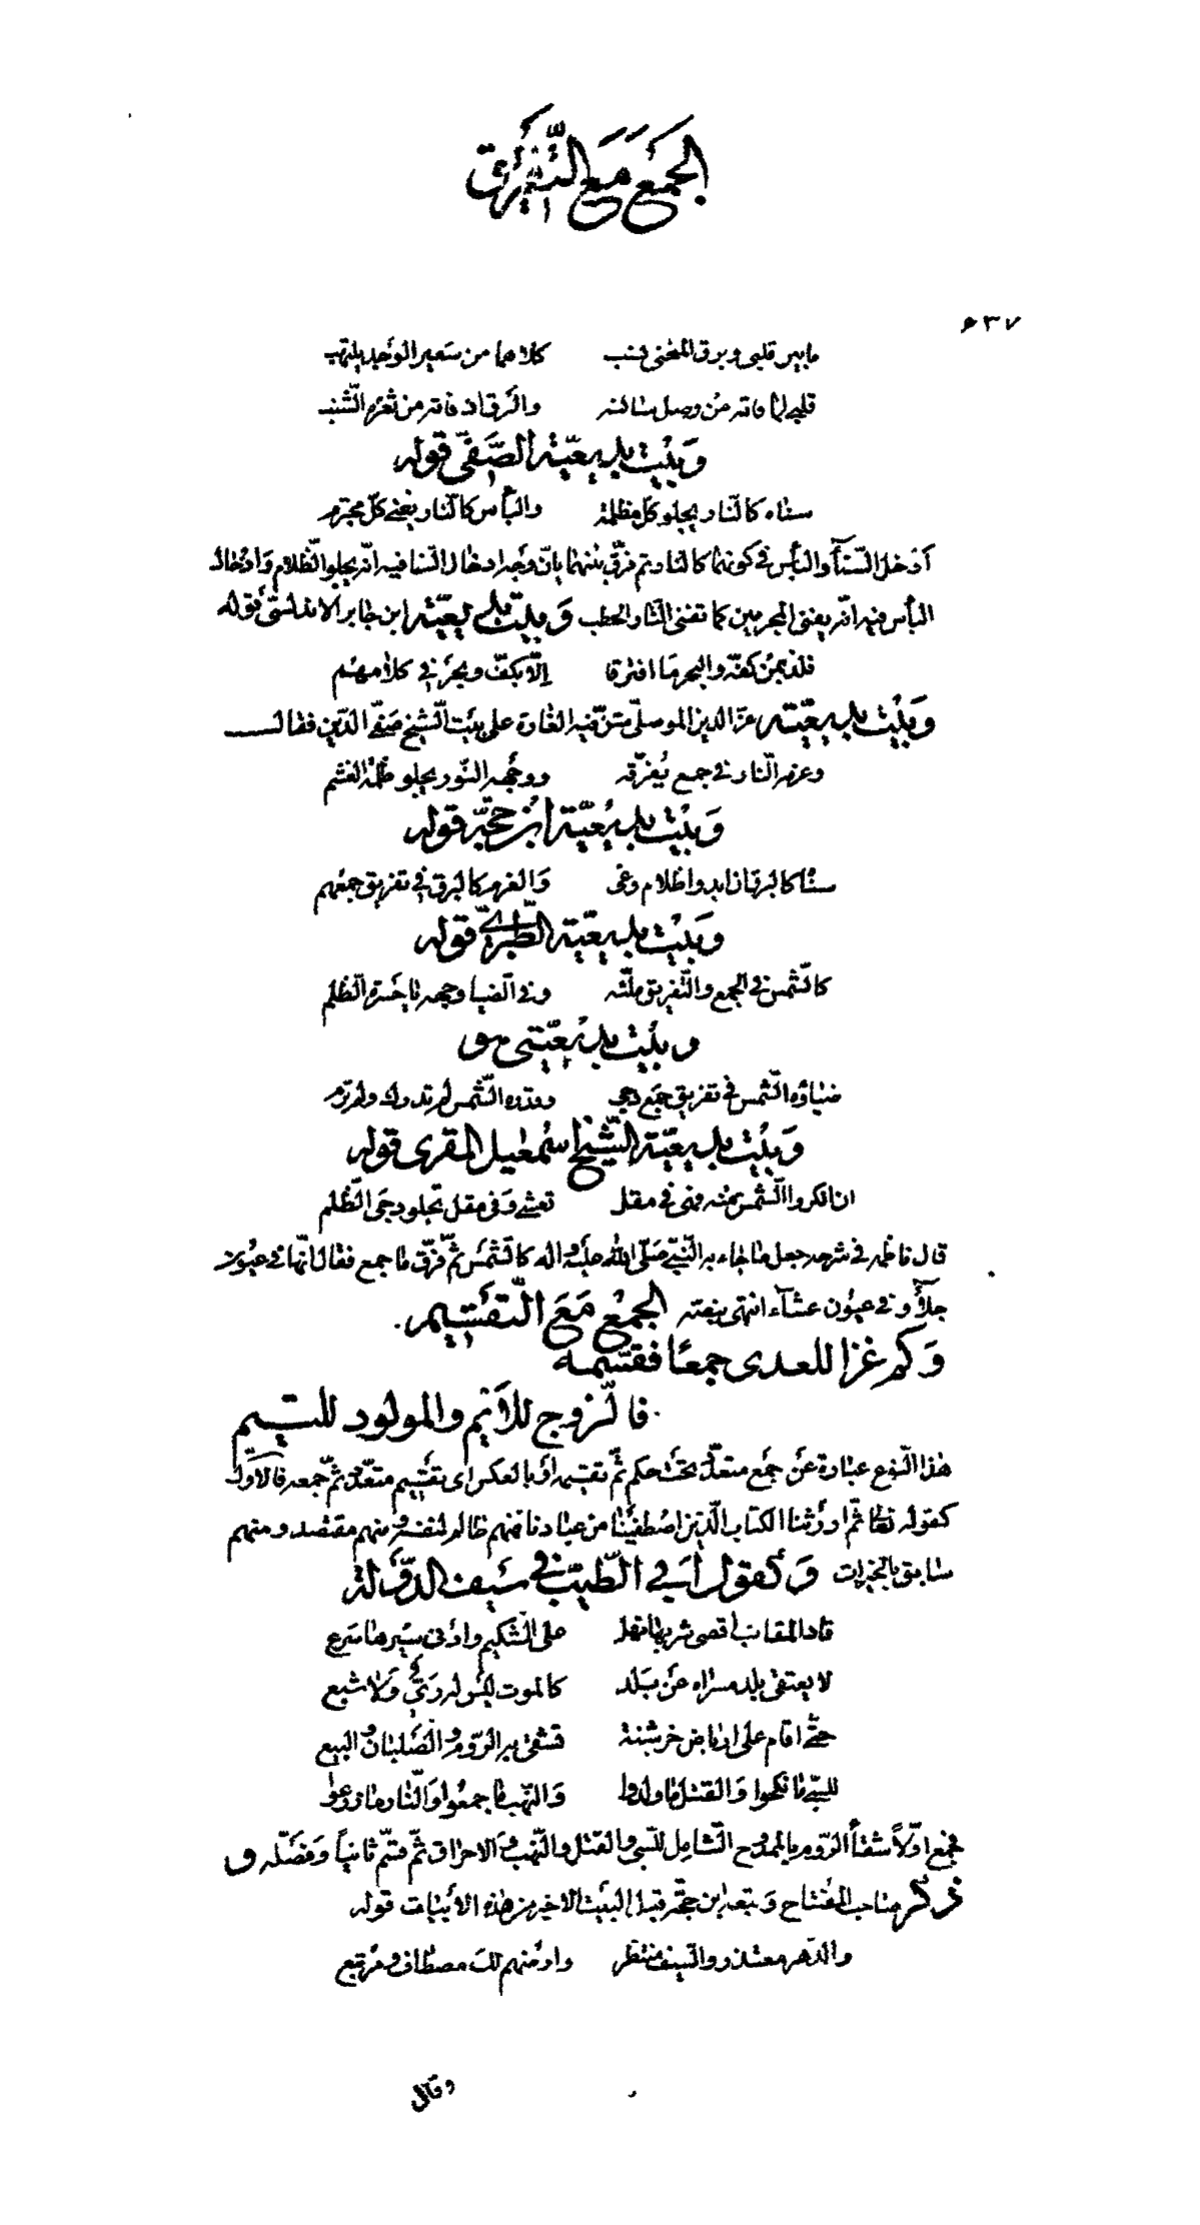 الجمع مع التفريق
٦٣٧
ما بين قلبي وبرق المنحنى نسب كلاهما من سعير الوجد يلتهب
قلبي لما فاته من وصل ساكنه والبرق اذ فاته من ثغره الشنب
وبيت بديعية الصفي قوله
سناه كالنار يجلو كل مظلمة والبأس كالنار يفني كل مجترم
أدخل السناء والبأس في كونهما كالنار ثم فرق بينهما بان وجه ادخال السنا فيه انه يجلو الظلام وادخال
البأس فيه انه يفنى المجرمين كما تفنى النار الحطب وبيت بديعية ابن جابر الاندلسي قوله
فلذ بمن كفه والبحر ما افترقا إلا بكف وبحر في كلامهم
وبيت بديعية عز الدين الموصلي متن فيه الغارة على بيت الشيخ صفي الدين فقال
وعزمه النار في جمع يفرقه ووجهه النور يجلو ظلمة الغشم
وبيت بديعية ابن حجة قوله
سناه كالبرق ان ابدوا ظلام وغى والعزم كالبرق في تفريق جمعهم
وبيت بديعية الطبري قوله
كالشمس في الجمع والتفريق ملته وفي الضيا وجهه يا خسرة الظلم
وبيت بديعيتي هو
ضياؤه الشمس في تفريق جمع دجى وقدره الشمس لم تدرك ولم ترم
وبيت بديعية الشيخ اسمعيل المقري قوله
ان انكروا الشمس منه فهي في مقل تعشى وفي مقل تجلو دجى الظلم
قال ناظمه في شرحه جعل ما جاء به النبي صلى الله عليه واله كالشمس ثم فرق ما جمع فقال انها في عيون
جلاء وفي عيون عشاء انتهى بنصه الجمع مع التقسيم
وكم غزا للعدى جمعا فقسمه
فالزوج للأيم والمولود لليتم
هذا النوع عبارة عن جمع متعدد تحت حكم ثم تقسيمه او بالعكس اى تقسيم متعدد ثم جمعه فالاول
كقوله تعالى ثم اورثنا الكتاب الذين اصطفينا من عبادنا فمنهم ظالم لنفسه ومنهم مقتصد ومنهم
سابق بالخيرات وكقول أبي الطيب في سيف الدولة
قاد المقانب اقصى شربها نهل على الشكيم وادنى سيرها سرع
لا يعتقى بلد مسراه عن بلد كالموت ليس له ري ولا شبع
حتى اقام على ارباض خرشنة تشقى به الروم والصلبان والبيع
للسبي ما نكحوا والقتل ما ولدوا والنهب ما جمعوا والنار ما زرعوا
فجمع اولا شقاء الروم بالممدوح الشامل للسبي والقتل والنهب والاحراق ثم قسم ثانيا وفصله و
ذكر صاحب المفتاح وتبعه ابن حجة قبل البيت الاخير من هذه الأبيات قوله
والدهر معتذر والسيف منتظر وارضهم لك مصطاف ومرتبع
وقال